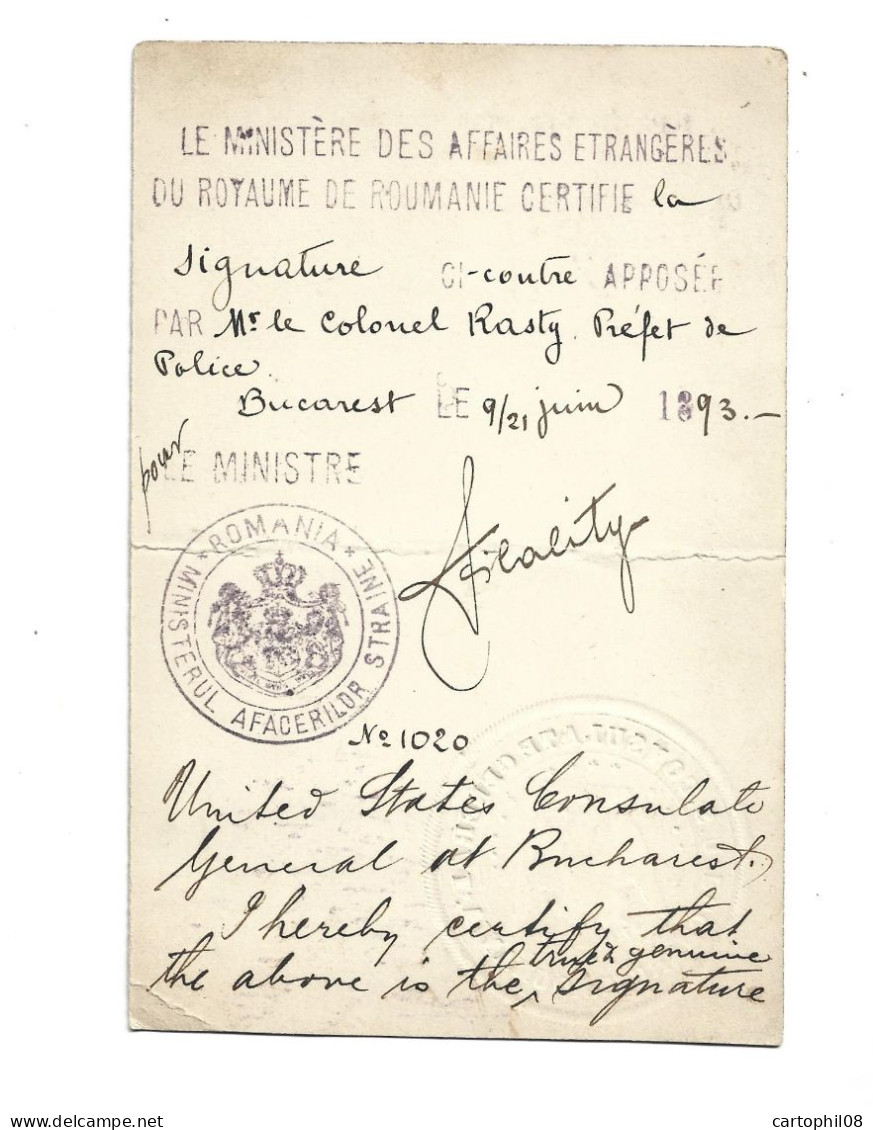 LE MINISTÈRE DES AFFAIRES ETRANGÈRES
DU ROYAUME DE ROUMANIE CERTIFIE la
Signature CI-contre APPOSÉE
PAR Mr le Colonel Rasty, Préfet de
Police.
Bucarest LE 9/21 juin 1893.-
pour LE MINISTRE
* ROMANIA * MINISTERUL AFACERILOR STRAINE
No 1020
United States Consulate
General at Bucharest.
I hereby certify that
true & genuine
the above is the ^ signature
cartophil08